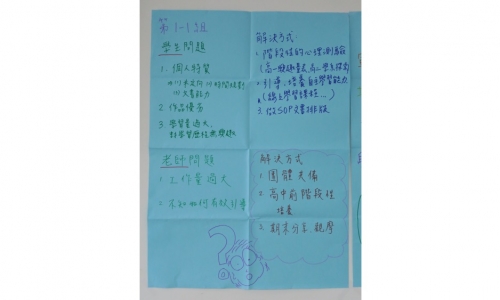 第1-1組
學生問題
1. 個人特質
(1)不知如何時間規劃
(2)文書能力
2. 作品優劣
3. 學習量過大,
對學習歷程無興趣
解決方式:
1. 階段性的心理測驗
(高一興趣量表,高二學系探索)
2. 引導、培養自主學習能力
(線上學習課程...)
3. 做SOP文書排版
老師問題
1. 工作量過大
2. 不知如何有效引導
解決方式
1. 團體共備
2. 高中前階段性
培養
3. 期末分享、觀摩